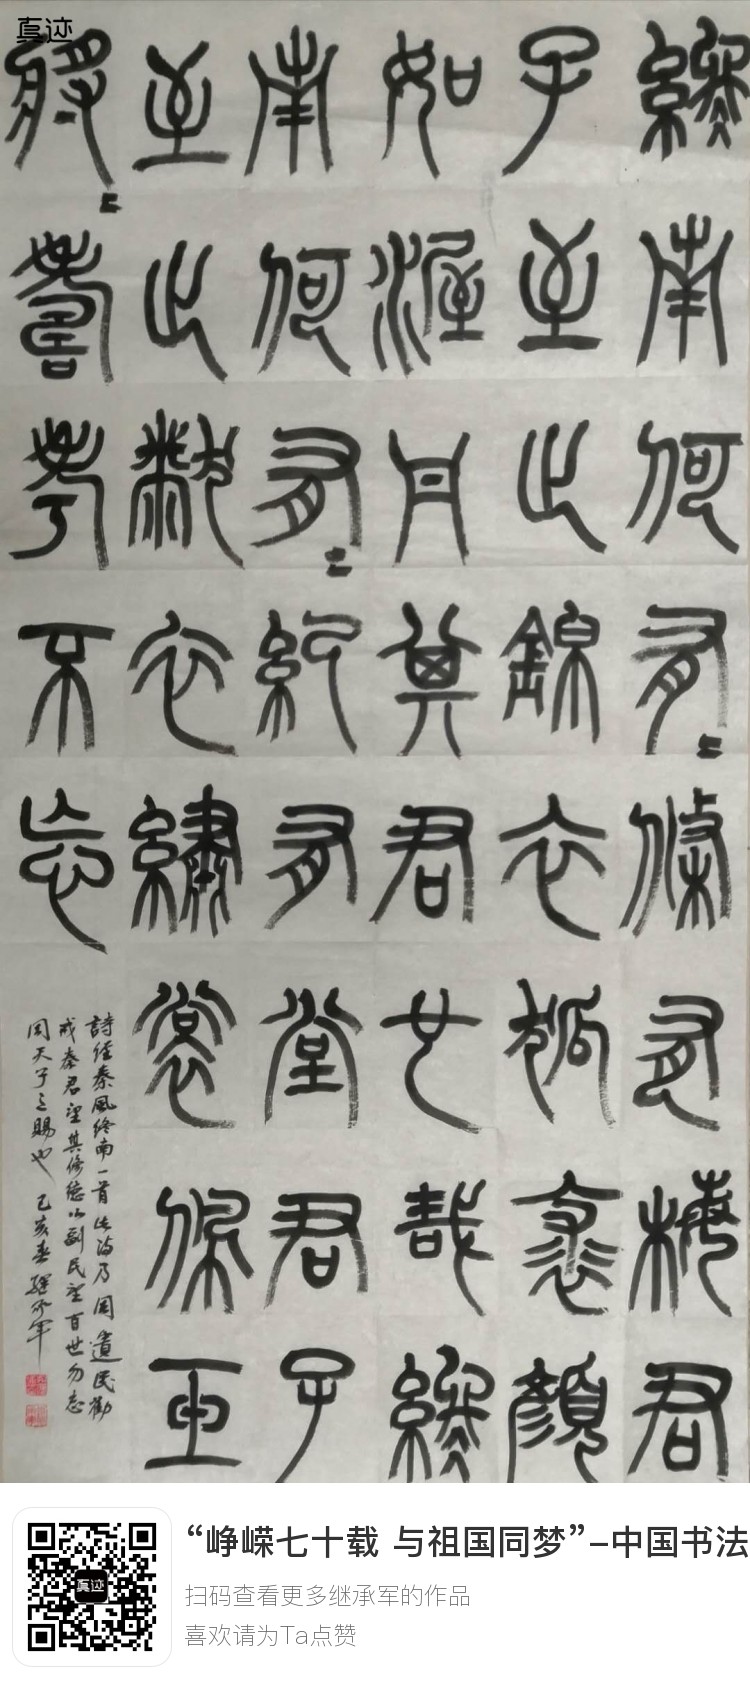 真迹
終南何有=條有梅君
子至止錦衣狐裘顏
如渥丹其君也哉終
南何有=紀有堂君子
至止黻衣繡裳佩玉
將=壽考不忘
詩經秦風終南一首此詩乃周遺民勸
戒秦君望其修德以副民望百世勿忘
周天子之賜也 己亥春 继承军
真迹
“峥嵘七十载 与祖国同梦”–中国书法
扫码查看更多继承军的作品
喜欢请为Ta点赞